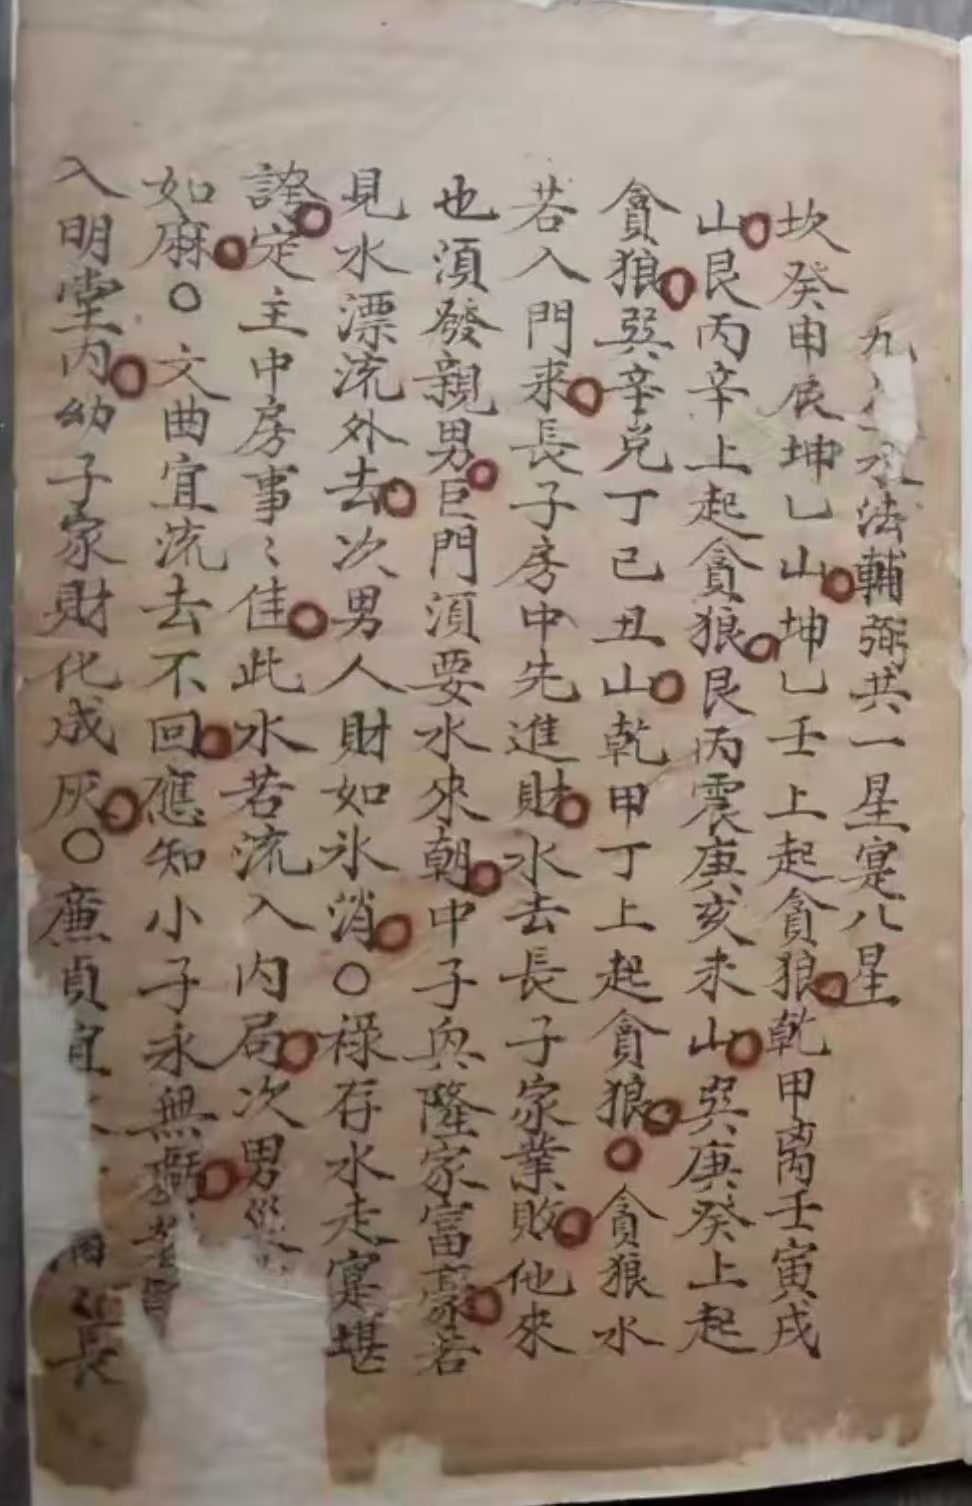 九水法輔弼共一星寔八星
坎癸申辰坤乚山○坤乚壬上起貪狼○乾甲离壬寅戌
山○艮丙辛上起貪狼○艮丙震庚亥未山○巽庚癸上起
貪狼○巽辛兑丁己丑山○乾甲丁上起貪狼○○貪狼水
若入門来○長子房中先進財○水去長子家業敗○他來
也須發親男○巨門須要水來朝○中子興隆家富豪○若
見水漂流外去○次男人財如氷消○○禄存水走寔堪
誇○定主中房事〻佳○此水若流入内局○次男
如麻○○文曲宜流去不回○應知小子永無○
入明堂内○幼子家財化成灰○○廉貞宜長